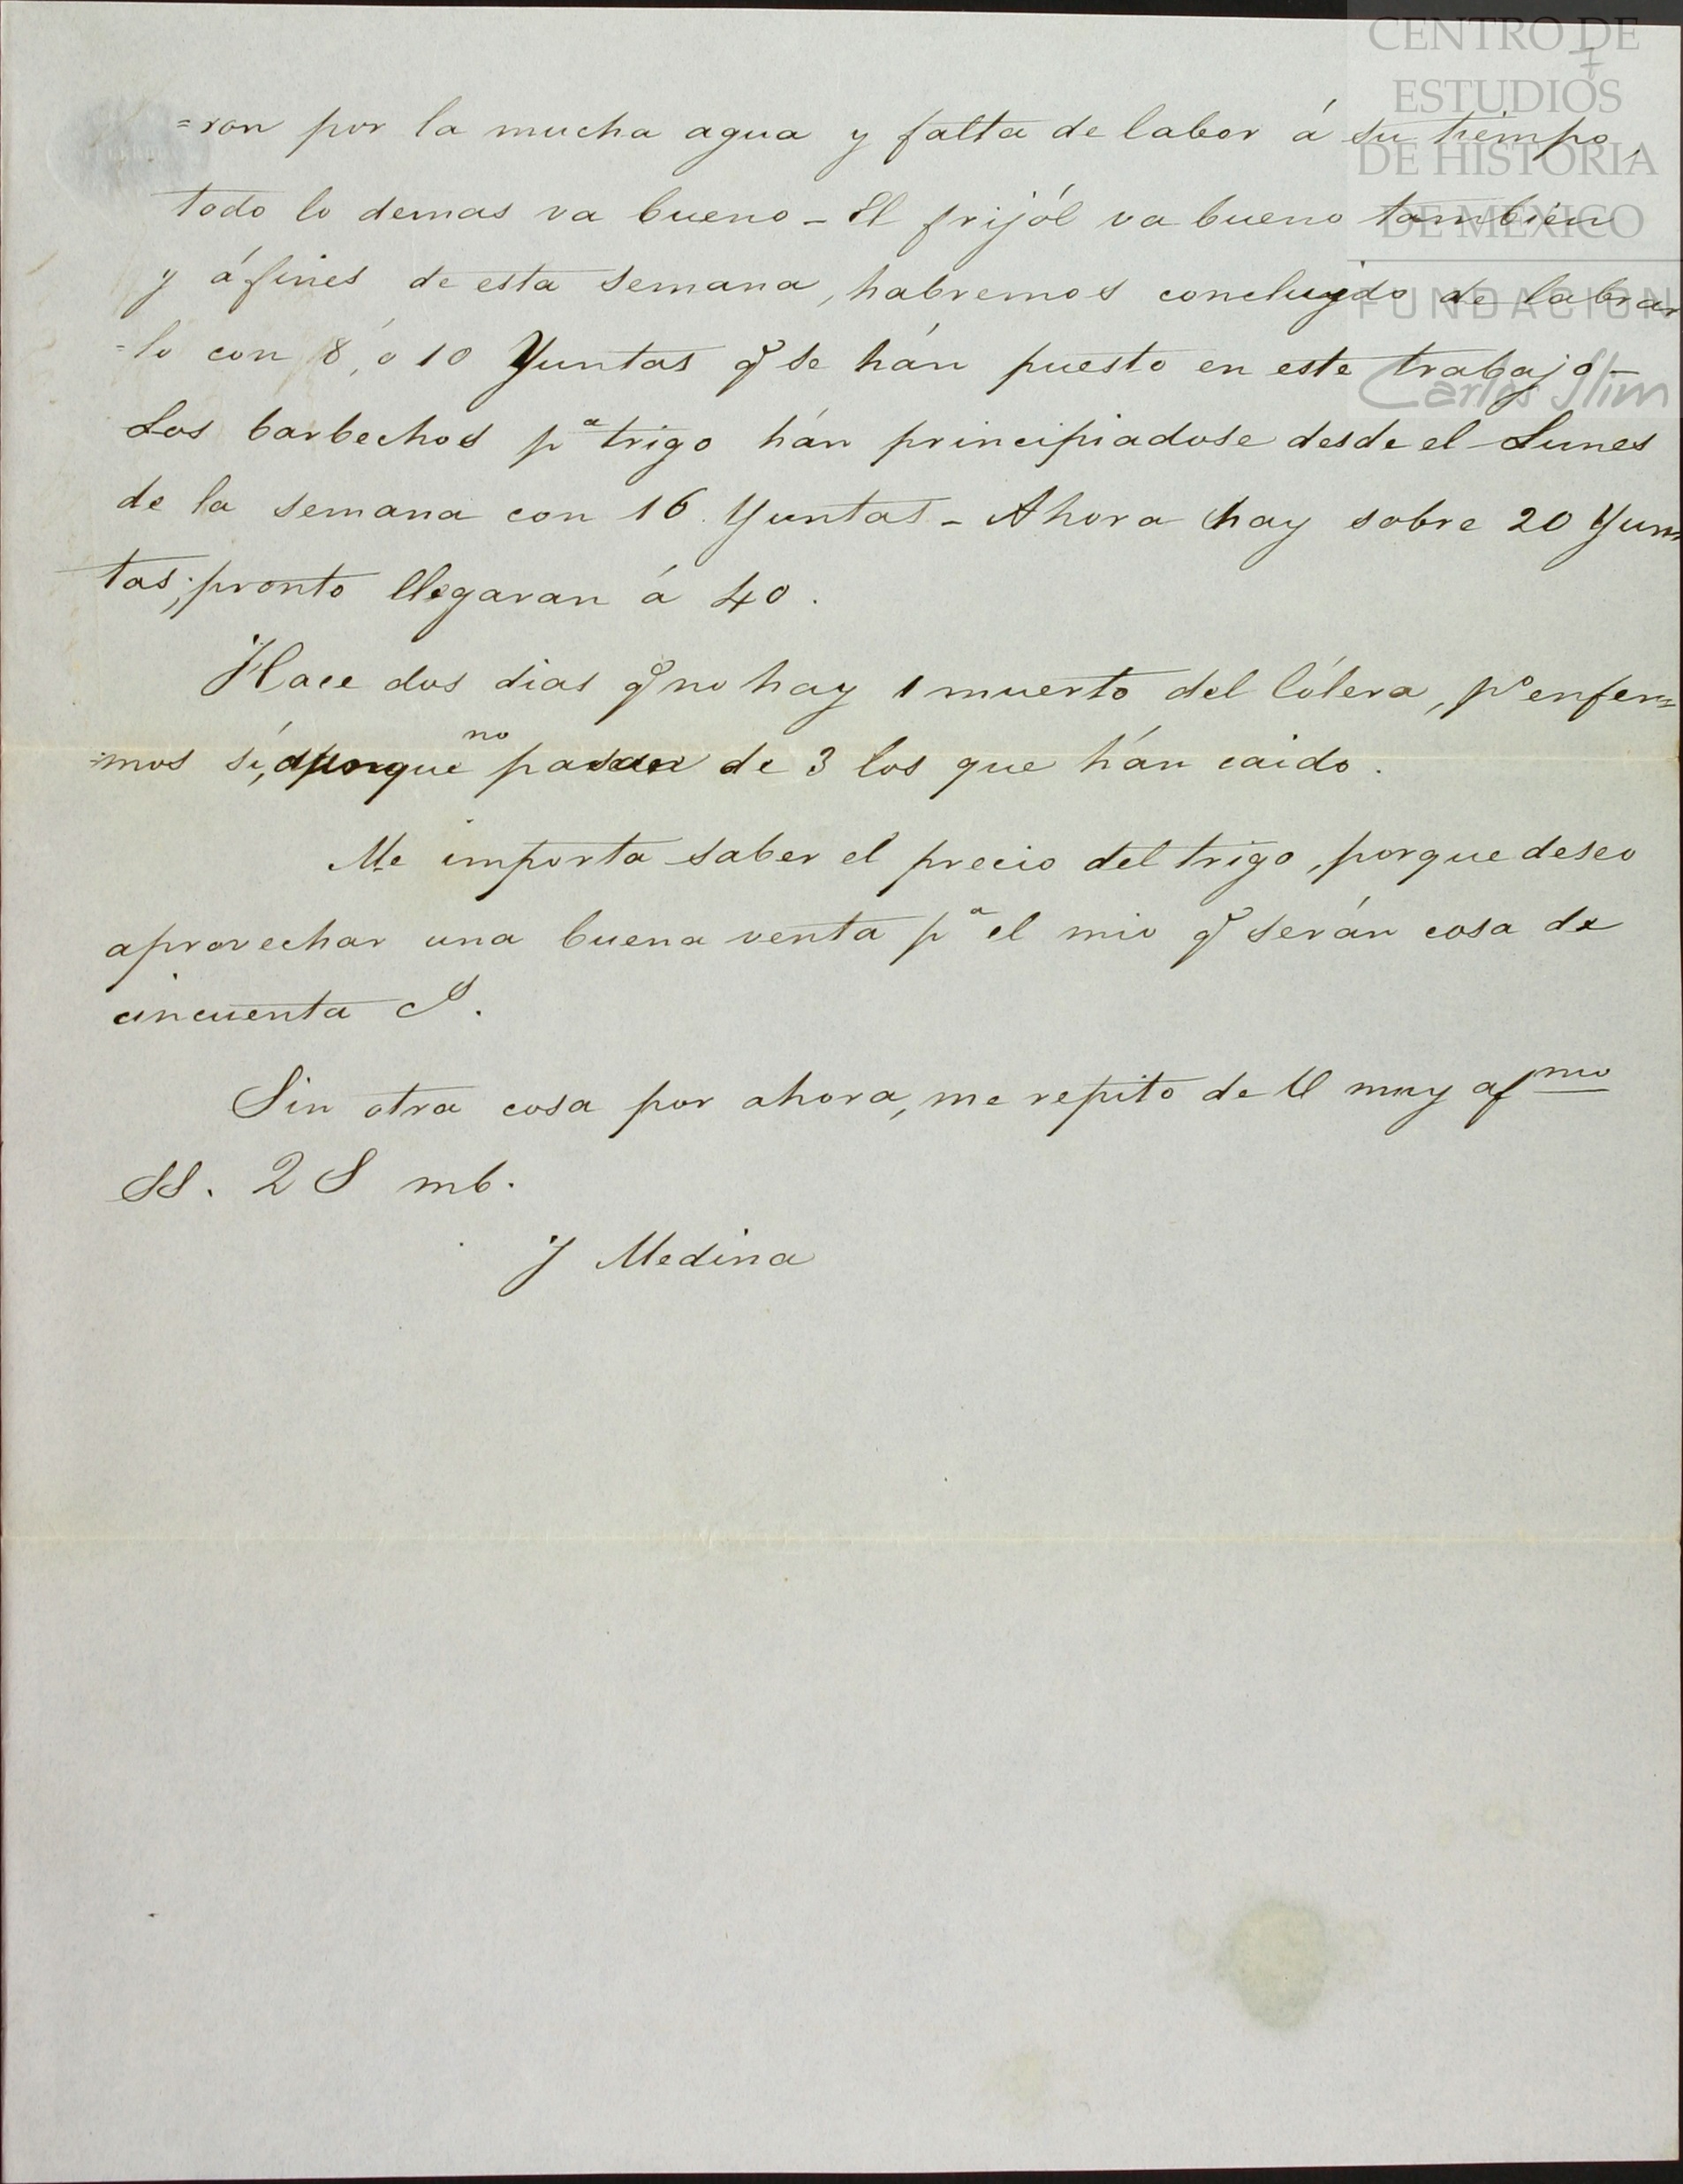 CENTRO DE
ESTUDIOS
DE HISTORIA
DE MEXICO
FUNDACION
Carlos Slim
=ron por la mucha agua y falta de labor á su tiempo,
todo lo demas va bueno - El frijól va bueno tambien
y á fines de esta semana, habremos concluydo de labrar
=lo con 8, ó 10 Yuntas q.e se hán puesto en este trabajo -
Los barbechos p.a trigo hán principiadose desde el Lunes
de la semana con 16 Yuntas - Ahora hay sobre 20 Yun
tas; pronto llegaran á 40.
Hace dos dias q.e no hay 1 muerto del Cólera, p.o enfer=
=mos sí, porque no pasan de 3 los que hán caido.
Me importa saber el precio del trigo, porque deseo
aprovechar una buena venta p.a el mio q.e serán cosa de
cincuenta c.s.
Sin otra cosa por ahora, me repito de U muy af.mo
SS. Q S mb.
J Medina